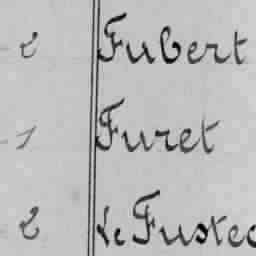 2 Fubert
1 Furet
2 Le Fustec